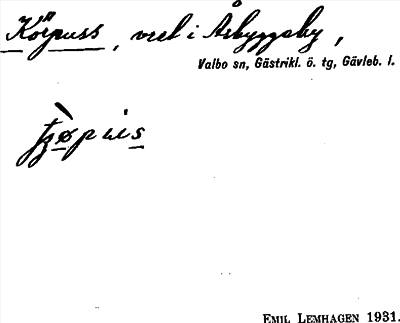 Körpuss, vret i Åbyggeby,
Valbo sn, Gästrikl. ö. tg, Gävleb. l.
EMIL LEMHAGEN 1931.